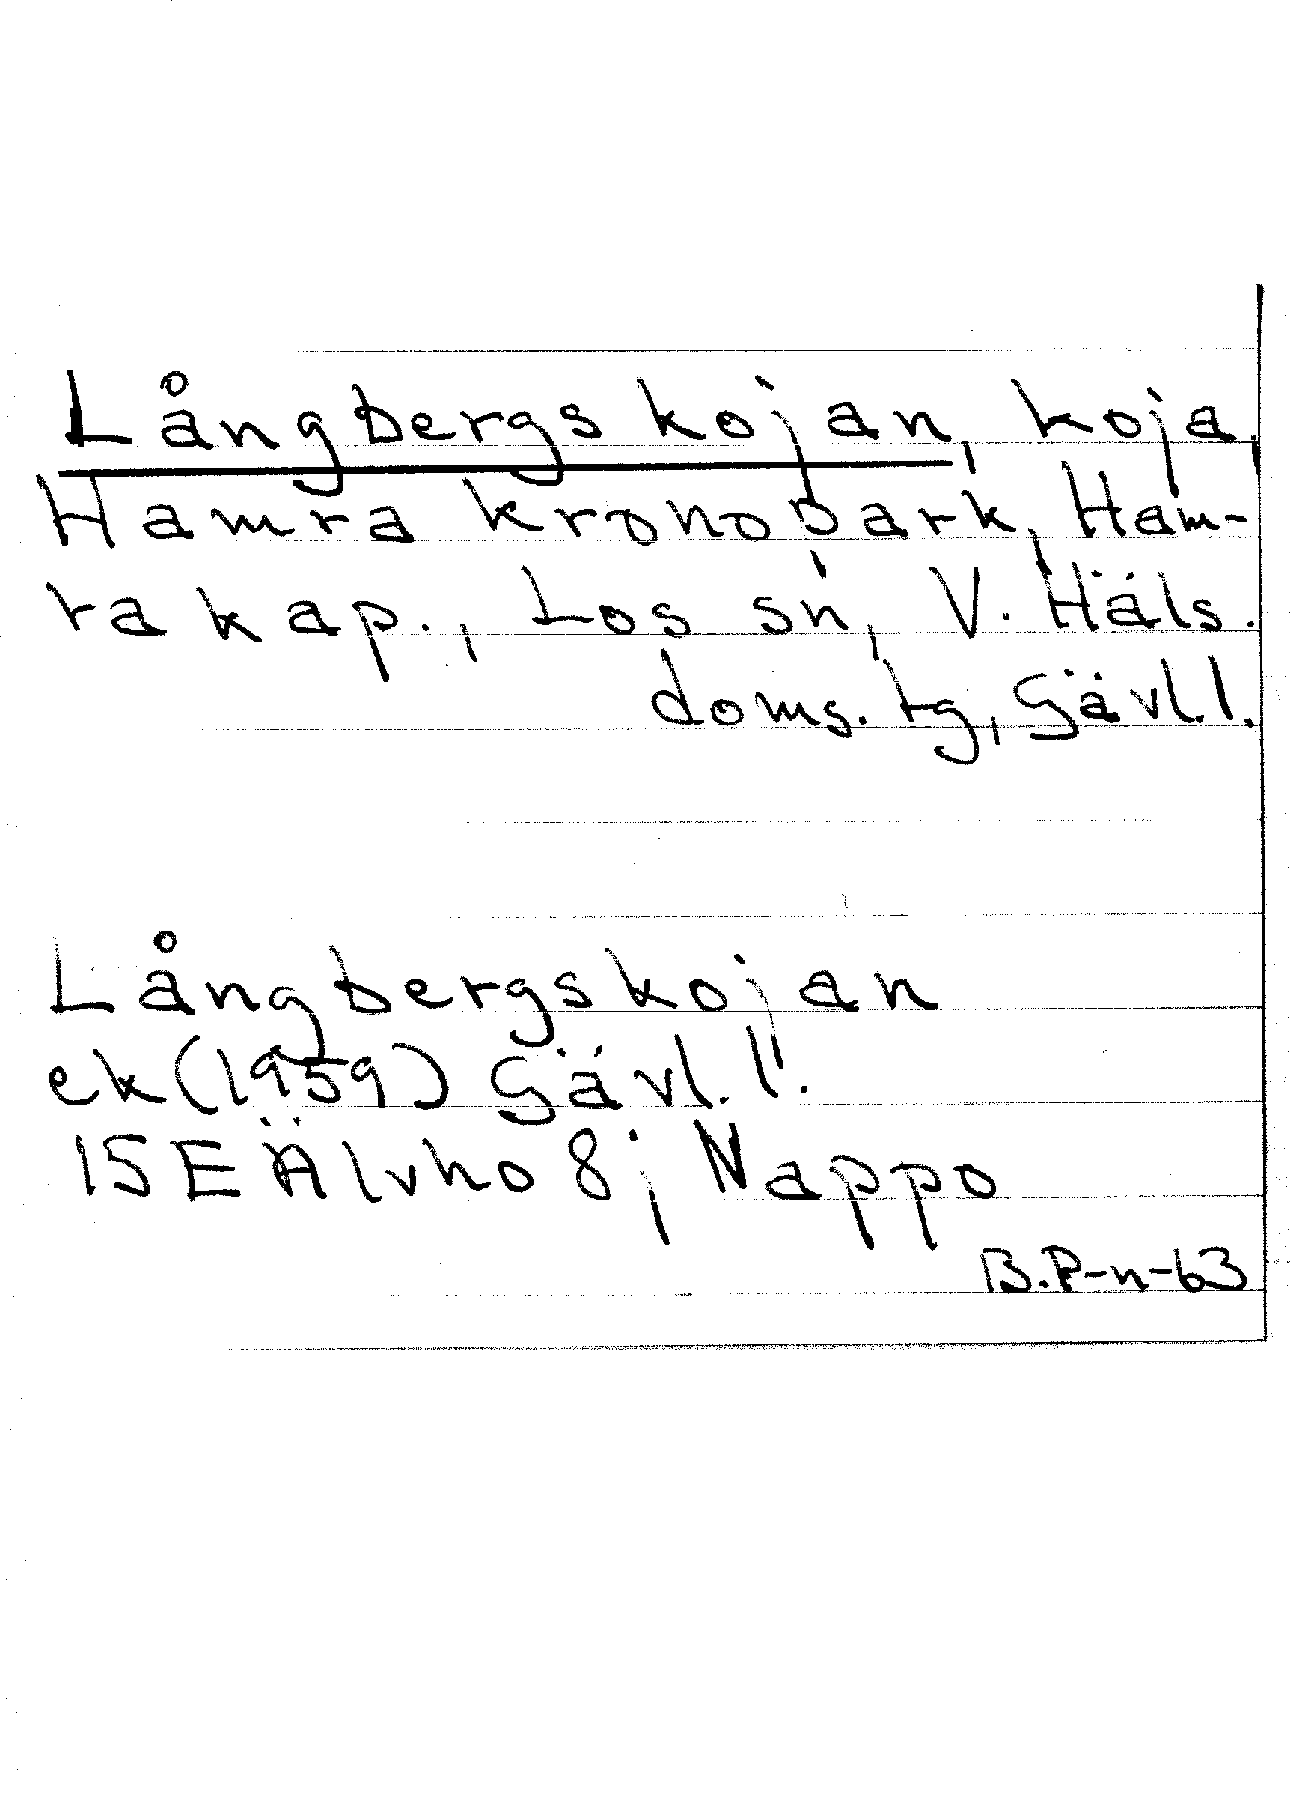 Långbergskojan, koja,
Hamra kronopark, Ham-
ra kap., Los sn, V. Häls.
doms. tg, Gävl. l.
Långbergskojan
ek (1959) Gävl. l.
15E Älvho 8; Nappo
B.P-n-63